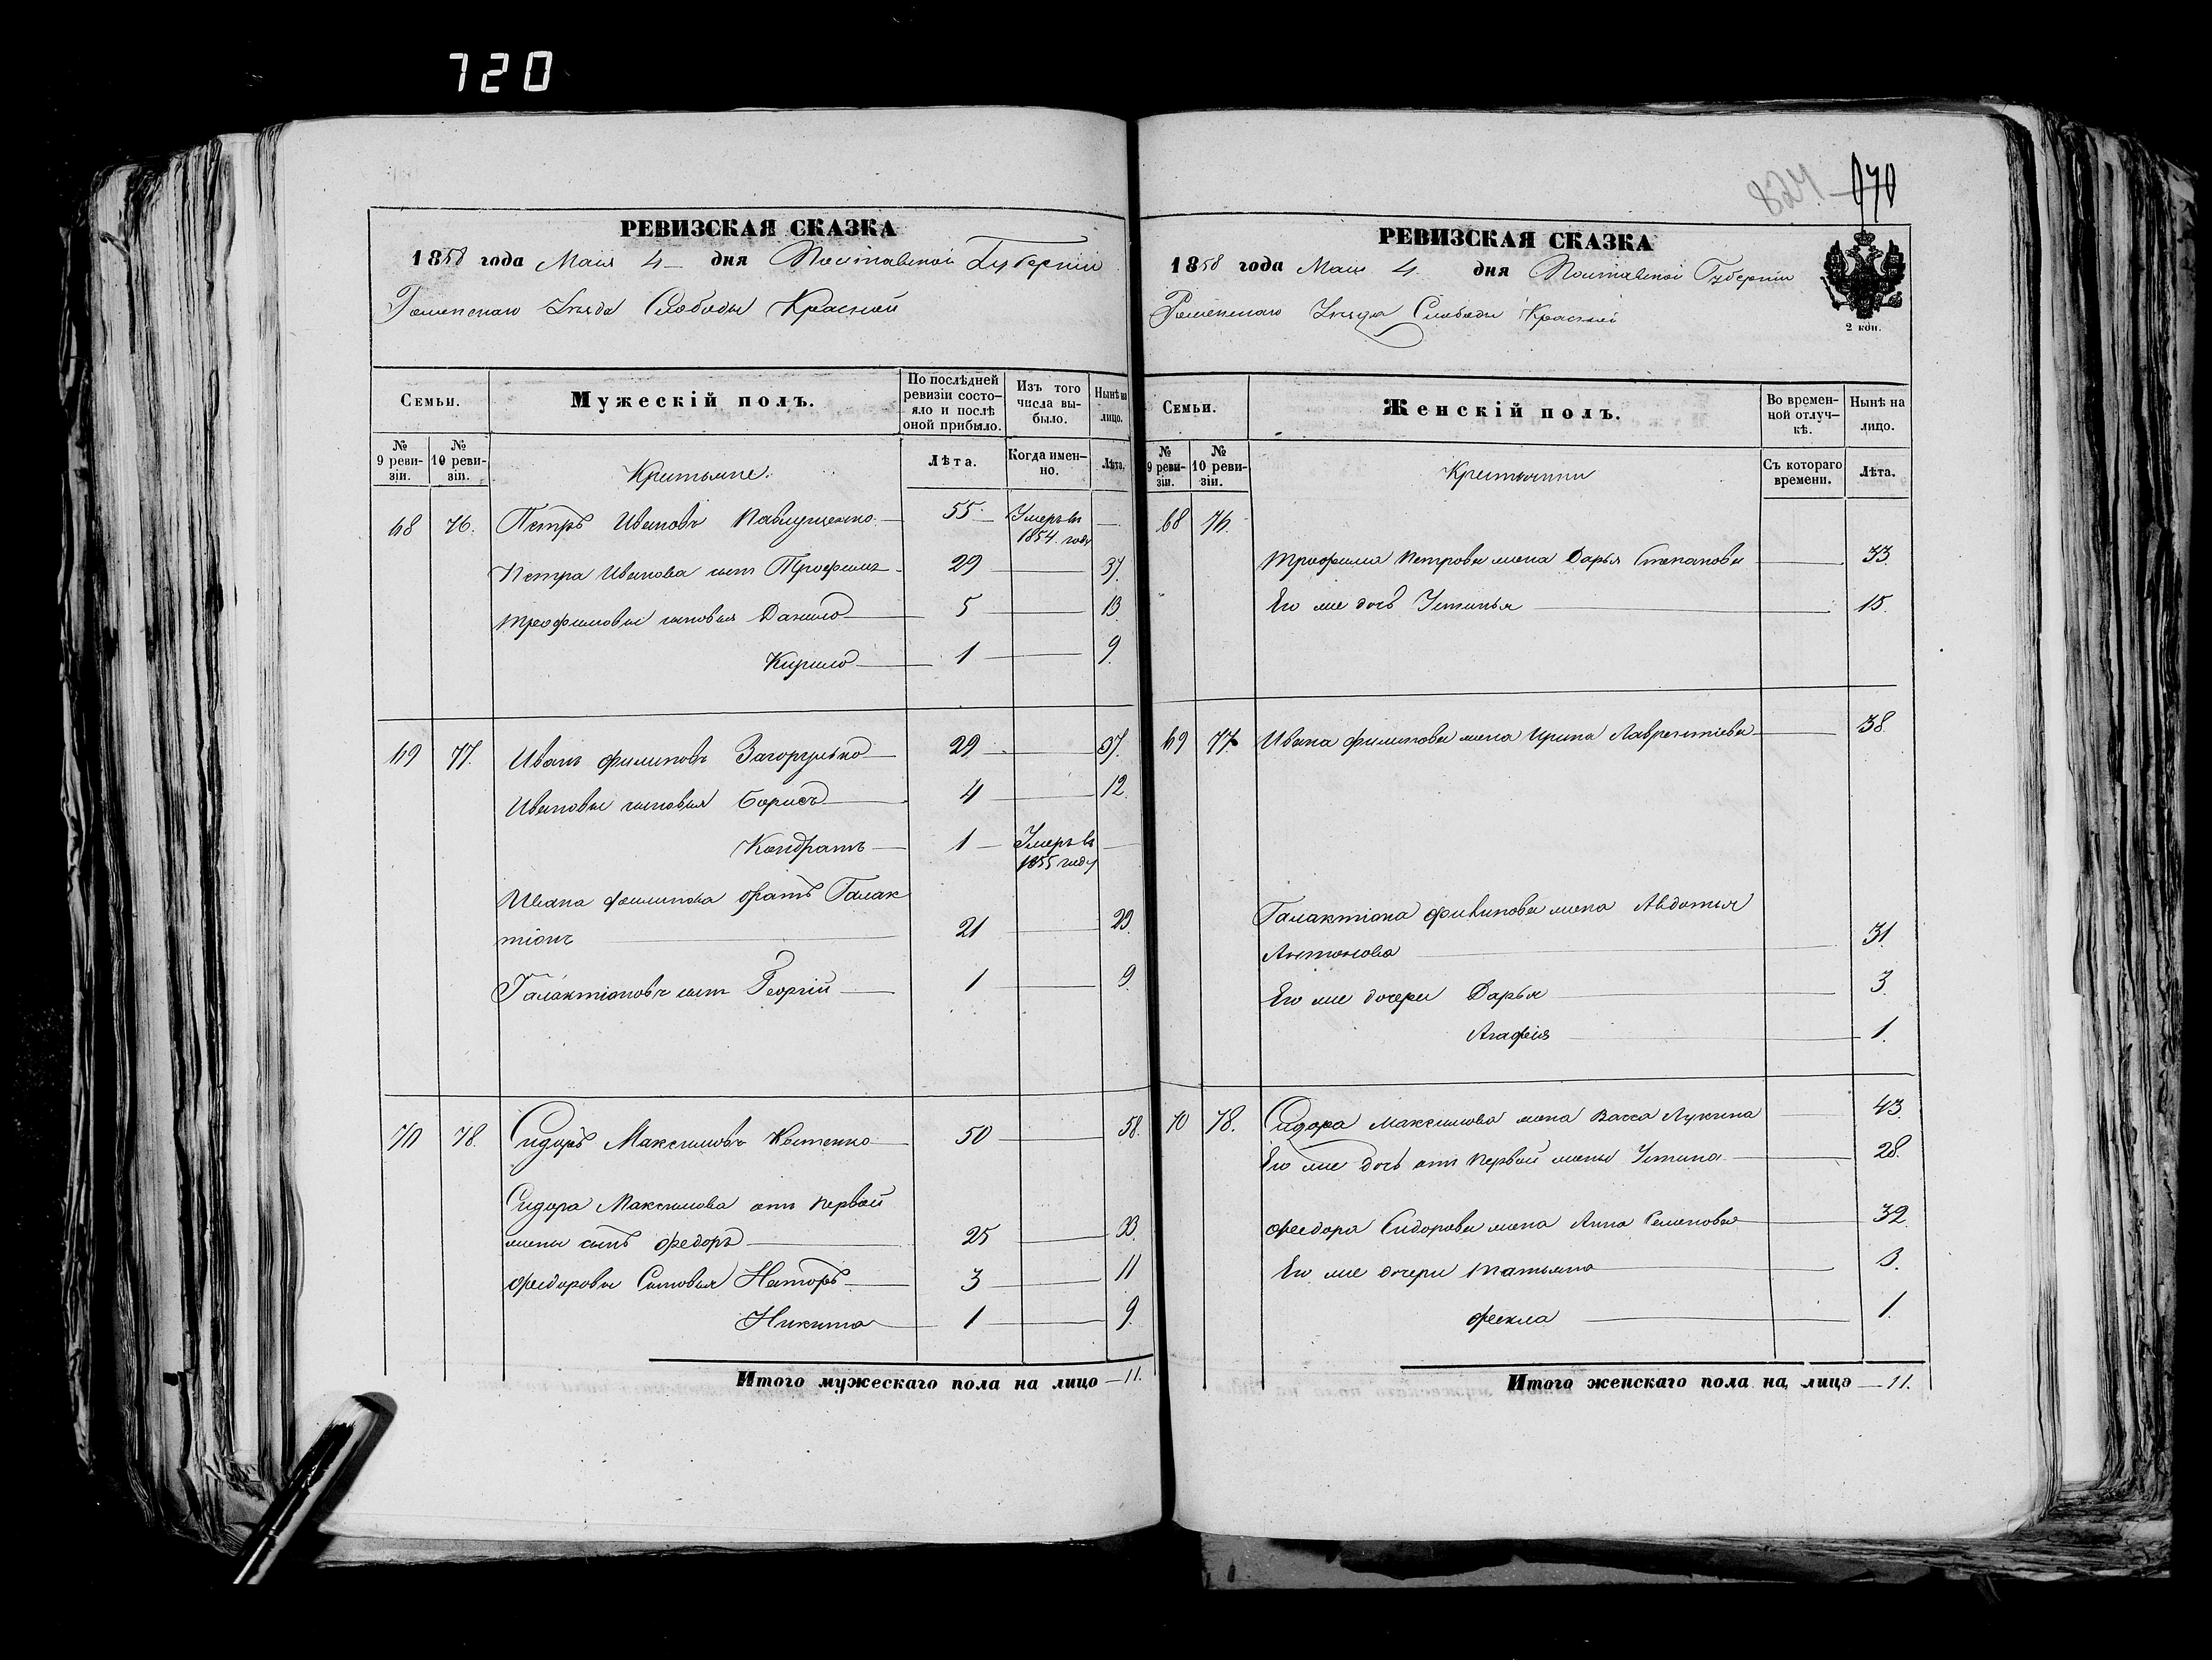 720
824 070
РЕВИЗСКАЯ СКАЗКА
1858 года Маія 4 дня Полтавской Губерніи
Роменскаго Уѣзда Слободы Красной
Семьи.
Мужескій полъ.
По послѣдней ревизіи состо-
яло и послѣ
оной прибыло.
Изъ того
числа вы-
было.
Нынѣ на
лицо.
№
9 реви-
зіи.
№
10 реви-
зіи.
Крестьяне.
Лѣта.
Когда имен-
но.
Лѣта.
68 76. Петръ Ивановъ Павлущенко 55 Умеръ въ
1854 году
Петра Иванова сынъ Трофимъ 29 37.
Трофимовы сыновья Данило 5 13.
Кирило 1 9.
69 77. Иванъ Филиповъ Загорулько 29 37.
Ивановы сыновья Борисъ 4 12.
Кондратъ 1 Умеръ въ
1855 году
Ивана Филипова братъ Галак
тіонъ 21 29.
Галактіоновъ сынъ Георгій 1 9.
70 78. Сидоръ Максимовъ 50 58.
Сидора Максимова отъ первой
жены сынъ Федоръ 25 33.
Федоровы Сыновья Несторъ 3 11
Никита 1 9.
Итого мужескаго пола на лицо 11.
РЕВИЗСКАЯ СКАЗКА
1858 года Маія 4 дня Полтавской Губерніи
Роменскаго Уѣзда Слободы Красной
2 коп.
Семьи.
Женскій полъ.
Во времен-
ной отлуч-
кѣ.
Нынѣ на
лицо.
№
9 реви-
зіи.
№
10 реви-
зіи.
Крестьянки
Съ котораго
времени.
Лѣта.
68 76.
Трофима Петрова жена Дарья Степанова 33.
Его же дочь Устинья 15.
69 77 Ивана Филипова жена Ирина Лаврентіева 38
Галактіона Филипова жена Авдотья
Антонова 31
Его же дочери Дарья 3.
Агафія 1.
70 78. Сидора Максимова жена Васса Лукина 43.
Его же дочь отъ первой жены Устина 28.
Федора Сидорова жена Анна Семенова 32.
Его же дочери Татьяна 3.
Фекла 1.
Итого женскаго пола на лицо 11.